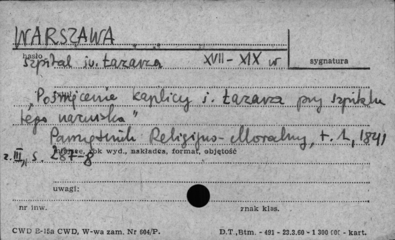 WARSZAWA
hasło
szpital św. Łazarza XVII - XIX w
sygnatura
"Poświęcenie kaplicy ś. Łazarza przy szpitalu
tego nazwiska"
Pamiętnik Religijno-Moralny, t. 1, 1841
z. III, s. 287-8
miejsce, rok wyd., nakładca, format, objętość
uwagi:
nr inw. znak klas.
CWD B-18a CWD, W-wa zam. Nr 604/P. D.T., Btm. - 491 - 23.2.60 - 1 300 000 - kart.